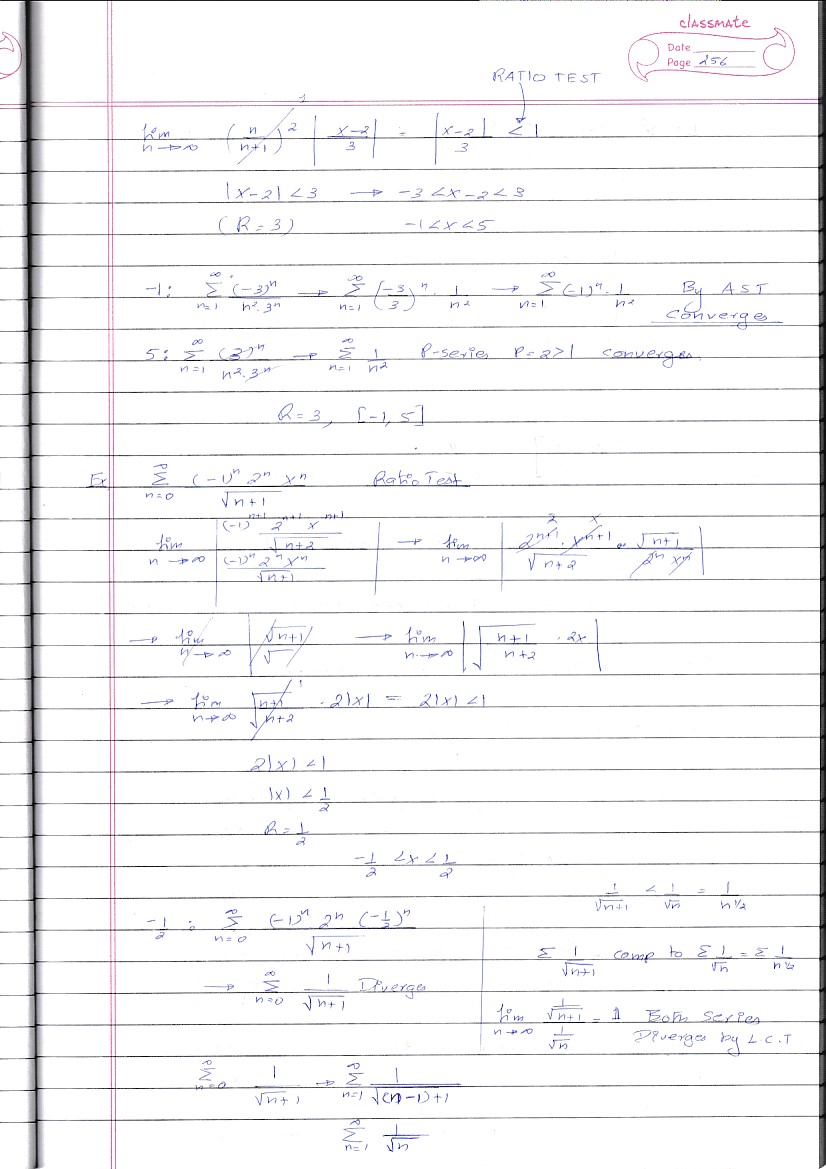 classmate
Date
Page 256
RATIO TEST
lim n→∞ (n/(n+1))^2 |(x-2)/3| = |(x-2)/3| < 1
1
|x-2| < 3 → -3 < x-2 < 3
(R = 3) -1 < x < 5
-1: ∞ Σ n=1 (-3)^n/(n^2·3^n) → ∞ Σ n=1 (-3/3)^n · 1/n^2 → ∞ Σ n=1 (-1)^n · 1/n^2 By AST
Converges
5: ∞ Σ n=1 (3)^n/(n^2·3^n) → ∞ Σ n=1 1/n^2 P-series P=2>1 converges.
R=3, [-1, 5]
Ex ∞ Σ n=0 (-1)^n 2^n x^n/√(n+1) Ratio Test
lim n→∞ |((-1)^(n+1) 2^(n+1) x^(n+1)/√(n+2))/((-1)^n 2^n x^n/√(n+1))| → lim n→∞ |2^(n+1)·x^(n+1)/√(n+2) · √(n+1)/(2^n x^n)|
2 x
→ lim n→∞ |√(n+1)/√| → lim n→∞ |√((n+1)/(n+2)) · 2x|
→ lim n→∞ √((n+1)/(n+2)) · 2|x| = 2|x| < 1
1
2|x| < 1
|x| < 1/2
R = 1/2
-1/2 < x < 1/2
-1/2 : ∞ Σ n=0 (-1)^n 2^n (-1/2)^n/√(n+1)
→ ∞ Σ n=0 1/√(n+1) Diverges
1/√(n+1) < 1/√n = 1/n^(1/2)
Σ 1/√(n+1) comp to Σ 1/√n = Σ 1/n^(1/2)
lim n→∞ (1/√(n+1))/(1/√n) = 1 Both Series
Diverges by L.C.T
∞ Σ n=0 1/√(n+1) → ∞ Σ n=1 1/√((n-1)+1)
∞ Σ n=1 1/√n